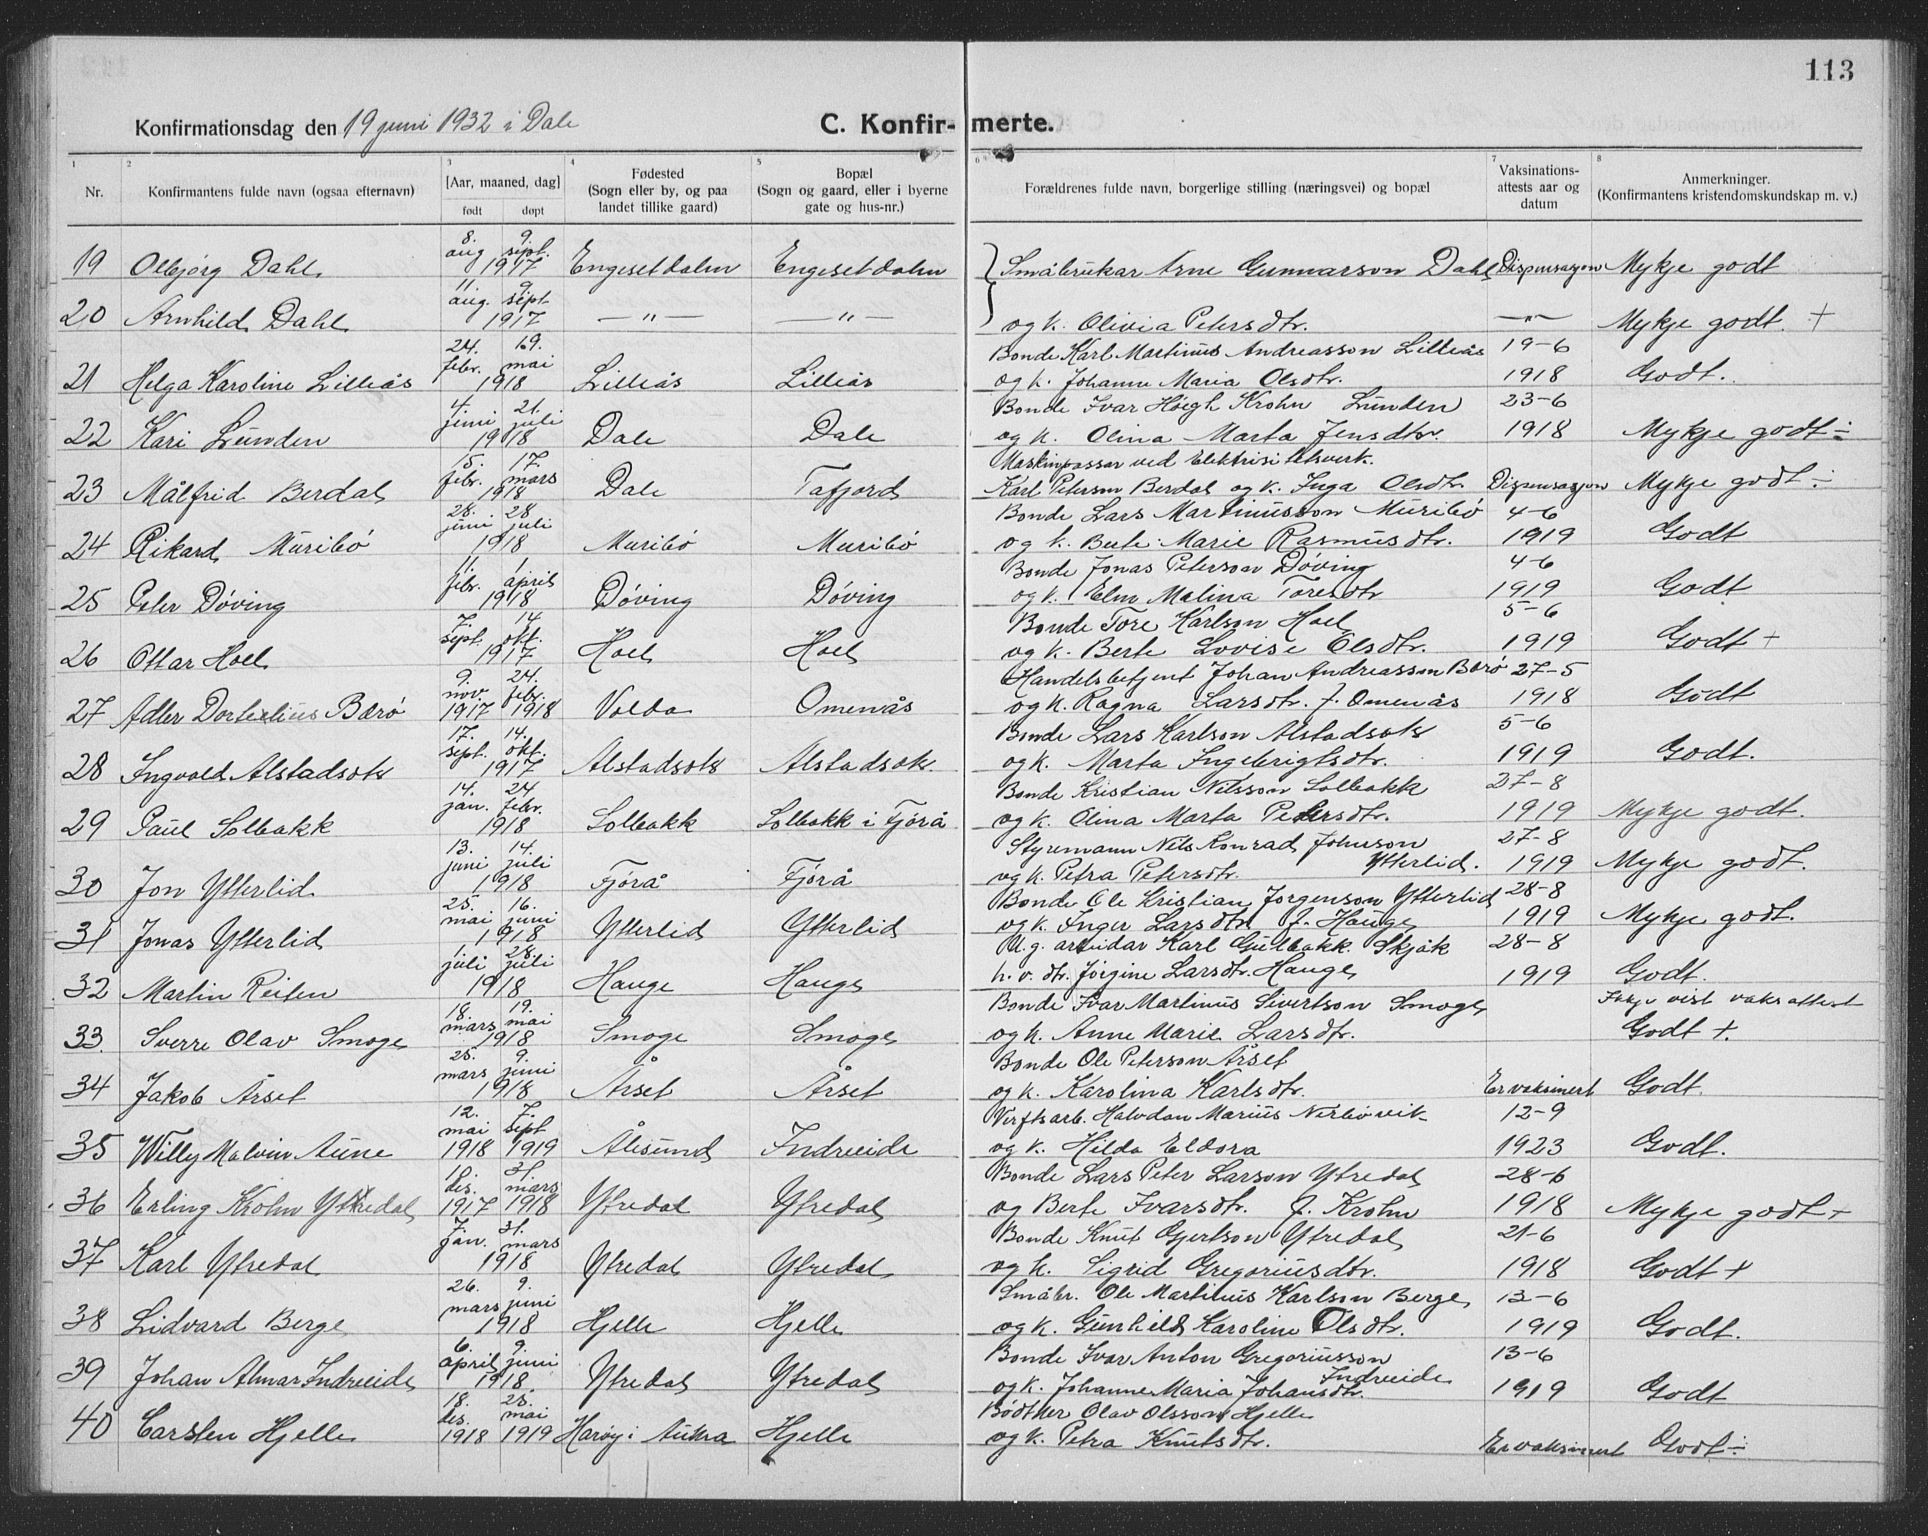 113
Konfirmationsdag den 19 juni 1932 i Dale
C. Konfir-merte.
1 2 3 4 5 6 7 8
Nr. Konfirmantens fulde navn (ogsaa efternavn) [Aar, maaned, dag] født døpt Fødested (Sogn eller by, og paa landet tillike gaard) Bopæl (Sogn og gaard, eller i byerne gate og hus-nr.) Forældrenes fulde navn, borgerlige stilling (næringsvei) og bopæl Vaksinations-attests aar og datum Anmerkninger. (Konfirmantens kristendomskundskap m. v.)
19 Olbjørg Dahl 8. aug 9. sept. 1917 Engesetdalen Engesetdalen Småbrukar Arne Gunnarson Dahl Dispensasjon Mykje godt
20 Arnhild Dahl 11. aug. 9. sept 1917 —"— —"— og k. Olivia Petersdtr. —"— Mykje godt. +
21 Helga Karoline Lilleås 24. febr. 19. mai 1918 Lilleås Lilleås Bonde Karl Martinus Andreasson Lilleås og k. Johanne Maria Olsdtr. 19-6 1918 Godt.
22 Kari Lunden 4. juni 21. juli 1918 Dale Dale Bonde Ivar Høegh Krohn Lunden og k. Olina Marta Jensdtr. 23-6 1918 Mykje godt ÷
23 Målfrid Berdal 15. febr. 17. mars 1918 Dale Tafjord Maskinpassar ved Elektrisitetsverk. Karl Peterson Berdal og k. Inga Olsdtr Dispensasjon Mykje godt ÷
24 Rikard Muribø 28. juni 28 juli 1918 Muribø Muribø Bonde Lars Martinusson Muribø og k. Berte Marie Rasmusdtr. 4-6 1919 Godt
25 Peter Døving 11. febr. 1 april 1918 Døving Døving Bonde Jonas Peterson Døving og k. Elen Malina Toresdtr 4-6 1919 Godt
26 Ottar Hoel 7. sept. 14 okt. 1917 Hoel Hoel Bonde Tore Karlson Hoel og k. Berte Lovise Olsdtr. 5-6 1919 Godt +
27 Adler Bærø 9. nov. 1917 24. febr. 1918 Volda Omenås Handelsbetjent Johan Andreasson Bærø og k. Ragna Larsdtr. f. Omenås 27-5 1918 Godt
28 Ingvald Alstadsæter 17. sept. 14. okt. 1917 Alstadsæter Alstadsæter Bonde Lars Karlson Alstadsæter og k. Marta Ingebrigtsdtr. 5-6 1919 Godt.
29 Paul Solbakk 14. jan. 24 febr. 1918 Solbakk Solbakk i Fjørå Bonde Kristian Nilsson Solbakk og k. Olina Marta Petersdtr. 27-8 1919 Mykje godt.
30 Jon Ytterlid 13. juni 14. juli 1918 Fjørå Fjørå Styrmann Nils Konrad Johnson Ytterlid. og k. Petra Petersdtr. 27-8 1919 Mykje godt.
31 Jonas Ytterlid 25. mai 16. juni 1918 Ytterlid Ytterlid Bonde Ole Kristian Jørgenson Ytterlid og k. Inger Larsdtr f. Hauge 28-8 1919 Mykje godt.
32 Martin Reiten 1. juli 28. juli 1918 Hauge Hauge U.g. arbeidar Karl Gulbakk Skjåk h.v. dtr. Jørgine Larsdtr. Hauge 28-8 1919 Godt.
33. Sverre Olav Smoge 18. mars 19. mai 1918 Smoge Smoge Bonde Ivar Martinus Sivertson Smoge og k. Anne Marie Larsdtr. Ikkje vist vaks attest Godt +.
34 Jakob Årset 25. mars 9. juni 1918 Årset Årset Bonde Ole Peterson Årset og k. Karolina Karlsdtr. Er vaksinert Godt.
35 Willy Malvin Aune 12. mai 1918 7. sept 1919 Ålesund Indreeide Verftsarb. Halvdan Marius Nerbøvik og k. Hilda Eldora 12-9 1923 Godt.
36 Erling Krohn Ytredal 10. des. 1917 31. mars 1918 Ytredal Ytredal Bonde Lars Peter Larson Ytredal og Berte Ivarsdtr. f. Krohn 28-6 1918 Mykje godt +
37 Karl Ytredal 7. jan. 31. mars 1918 Ytredal Ytredal Bonde Knut Gjertson Ytredal og k. Sigrid Gregoriusdtr. 21-6 1918 Godt +
38 Lidvard Berge 26. mars 9. juni 1918 Hjelle Hjelle Småbr. Ole Martinus Karlson Berge og k. Gunhild Karoline Olsdtr. 13-6 1919 Godt.
39 Johan Almar Indreeide 6. april 9. juni 1918 Ytredal Ytredal Bonde Ivar Anton Gregoriusson Indreeide og k. Johanne Maria Johansdtr. 13-6 1919 Godt
40 Carsten Hjelle 18. des. 1918 25. mai 1919 Harøy i Aukra Hjelle Bødtker Olav Olsson Hjelle og k. Petra Knutsdtr. Er vaksinert Godt ÷